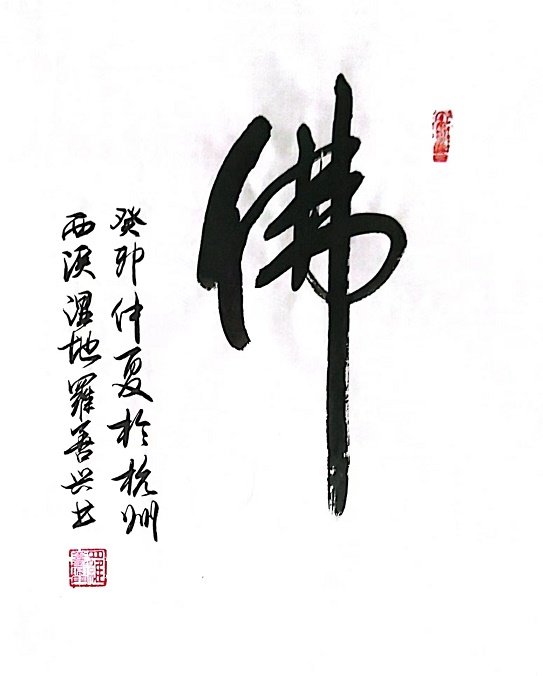 佛
癸卯仲夏于杭州
西溪湿地羅善兴书